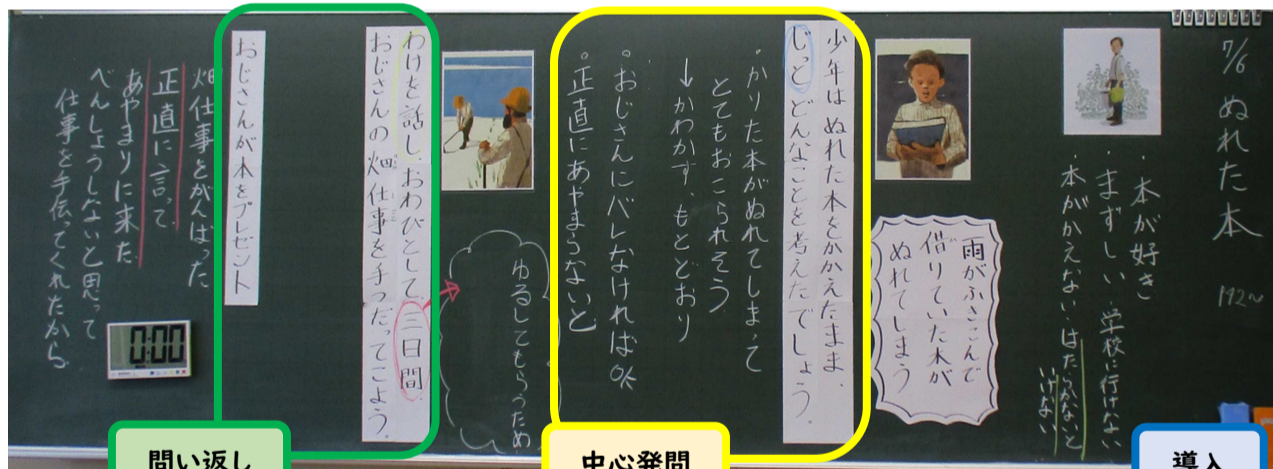 7/6 ぬれた本
192~
・本が好き
・まずしい 学校に行けない
・本がかえない・はたらかないと
いけない
雨がふきこんで
借りていた本が
ぬれてしまう
少年はぬれた本をかかえたまま、
じっとどんなことを考えたでしょう。
・かりた本がぬれてしまって
とてもおこられそう
↓かわかす、もとどおり
・おじさんにバレなければOK
・正直にあやまらないと
ゆるしてもらうため
わけを話し、おわびとして、三日間、
おじさんの畑仕事を手つだってこよう。
おじさんが本をプレゼント
畑仕事をがんばった
正直に言って
あやまりに来た
べんしょうしないと思って
仕事を手伝ってくれたから
0:00
導入
中心発問
問い返し